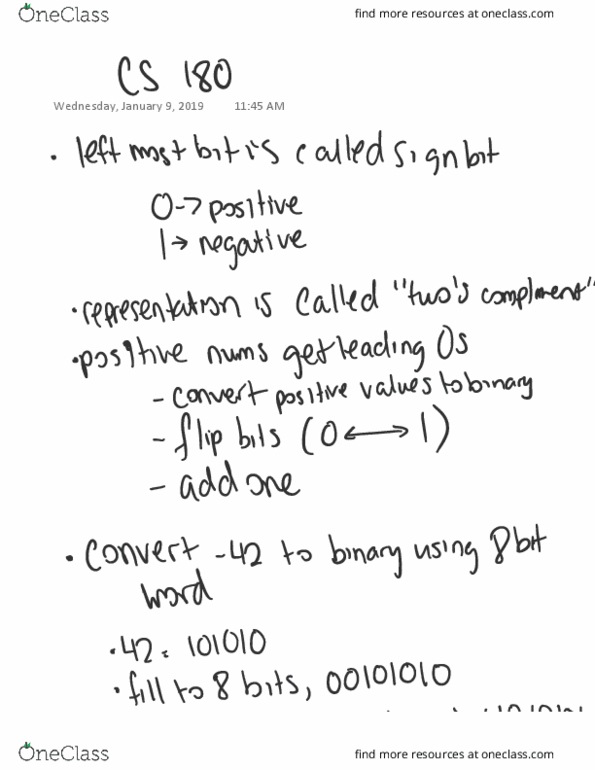 OneClass
find more resources at oneclass.com
CS 180
Wednesday, January 9, 2019 11:45 AM
• left most bit is called sign bit
0 -> positive
1 → negative
• representation is called "two's compliment"
• positive nums get leading 0s
- convert positive values to binary
- flip bits (0 ⟷ 1)
- add one
• convert -42 to binary using 8 bit
word
• 42 = 101010
• fill to 8 bits, 00101010
OneClass
find more resources at oneclass.com